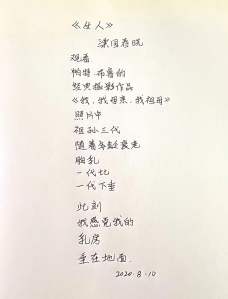 《女人》
梁园春晓
观看
帕特·布鲁的
经典摄影作品
《我，我母亲，我祖母》
照片中
祖孙三代
随着年龄衰老
胸乳
一代比
一代下垂
此刻
我感觉我的
乳房
垂在地面.
2020.8.10